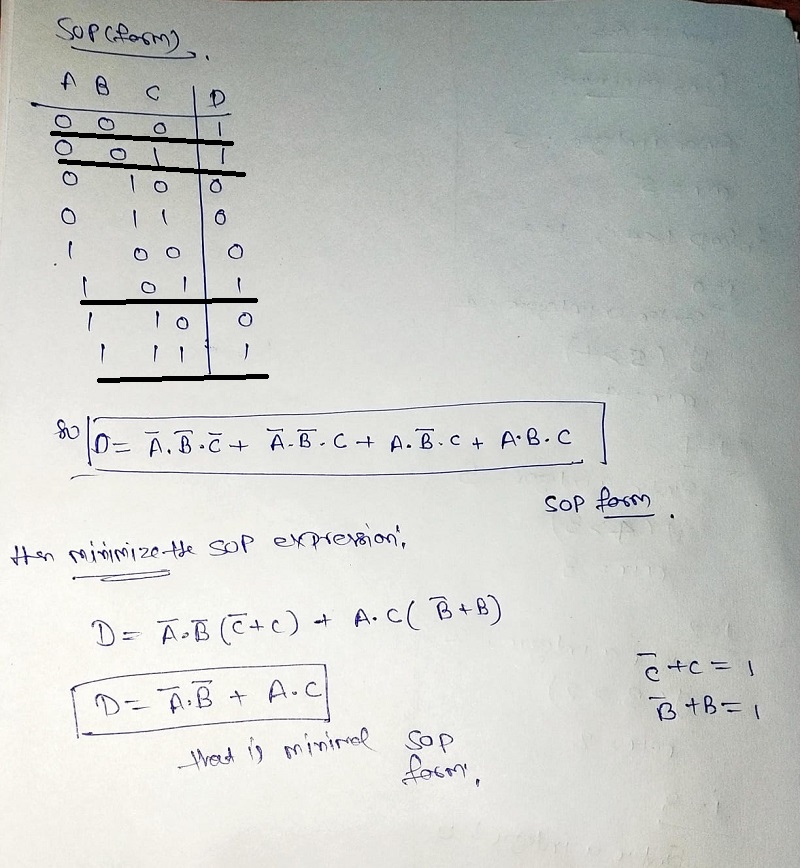 SOP (form).
A B C D
0 0 0 1
0 0 1 1
0 1 0 0
0 1 1 0
1 0 0 0
1 0 1 1
1 1 0 0
1 1 1 1
so D = A̅.B̅.C̅ + A̅.B̅.C + A.B̅.C + A.B.C
SOP form.
then minimize the SOP expression:
D = A̅.B̅ (C̅+C) + A.C( B̅+B)
C̅+C = 1
D = A̅.B̅ + A.C
B̅+B = 1
that is minimal SOP
form.